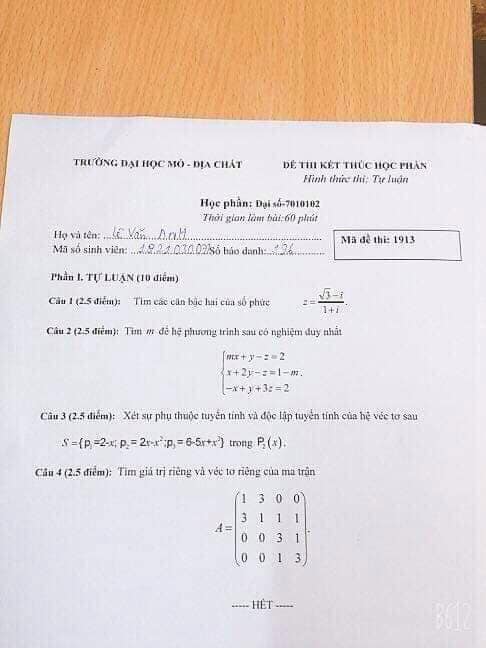 TRƯỜNG ĐẠI HỌC MỎ - ĐỊA CHẤT
ĐỀ THI KẾT THÚC HỌC PHẦN
Hình thức thi: Tự luận
Học phần: Đại số-7010102
Thời gian làm bài:60 phút
Họ và tên: LÊ Văn ANH
Mã số sinh viên: Số báo danh: 136
Mã đề thi: 1913
Phần I. TỰ LUẬN (10 điểm)
Câu 1 (2.5 điểm): Tìm các căn bậc hai của số phức z = (√3 − i)/(1 + i).
Câu 2 (2.5 điểm): Tìm m để hệ phương trình sau có nghiệm duy nhất
mx + y − z = 2
x + 2y − z = 1 − m.
−x + y + 3z = 2
Câu 3 (2.5 điểm): Xét sự phụ thuộc tuyến tính và độc lập tuyến tính của hệ véc tơ sau
S = {p₁ =2-x; p₂ = 2x-x²;p₃ = 6-5x+x²} trong P₂(x).
Câu 4 (2.5 điểm): Tìm giá trị riêng và véc tơ riêng của ma trận
1 3 0 0
3 1 1 1
A = 0 0 3 1 .
0 0 1 3
----- HẾT -----
B612